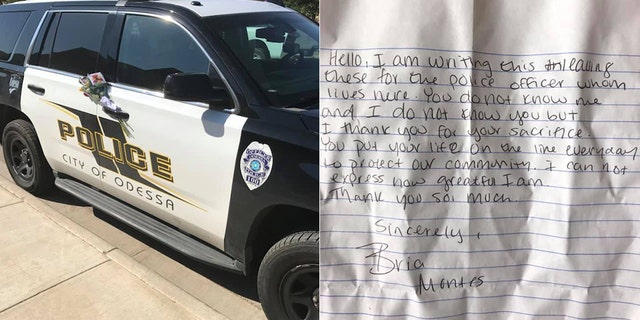 POLICE
CITY OF ODESSA
Hello, I am writing this leaving
these for the police officer whom
lives here. You do not know me
and I do not know you but
I thank you for your sacrifice.
You put your life on the line everyday
to protect our community. I can not
express how greatful I am.
Thank you so much.
Sincerely,
Bria
Montes